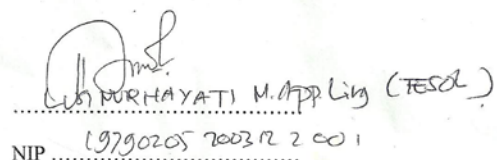 Lusi NURHAYATI M.App.Ling (TESOL)
NIP 19790205 200312 2 001